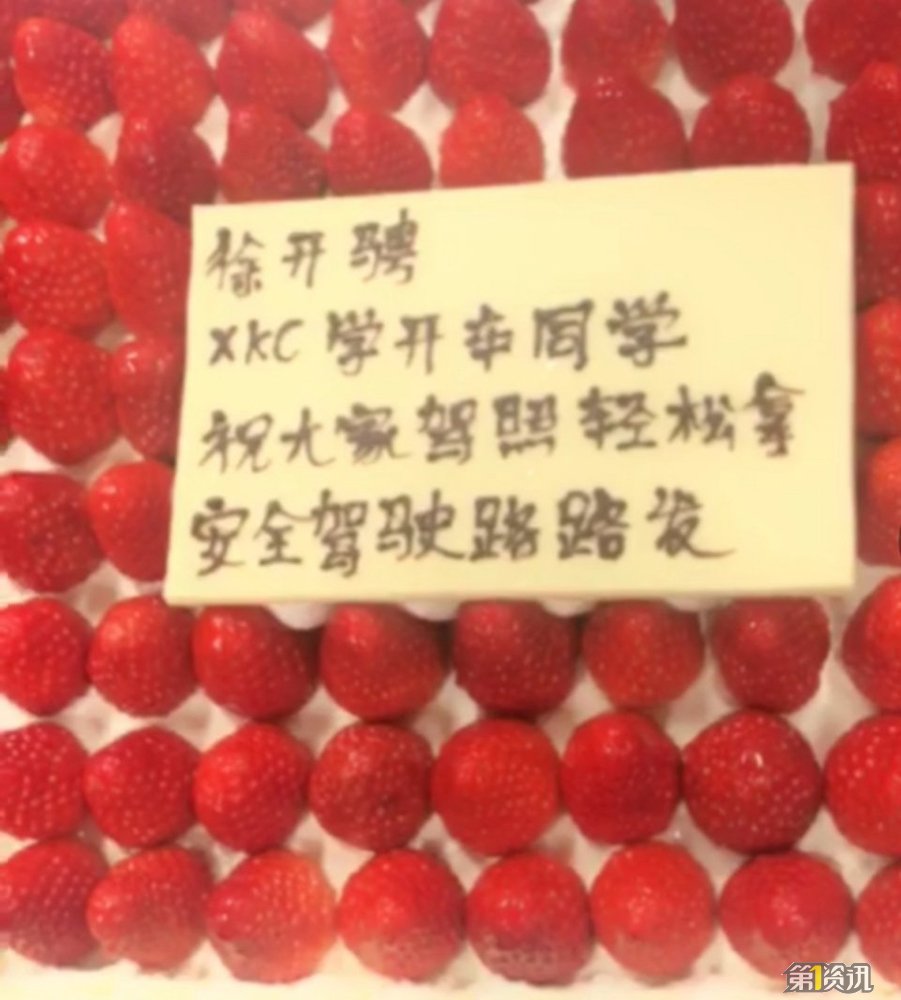 徐开骋
XKC 学开车同学
祝大家驾照轻松拿
安全驾驶路路发
第1资讯